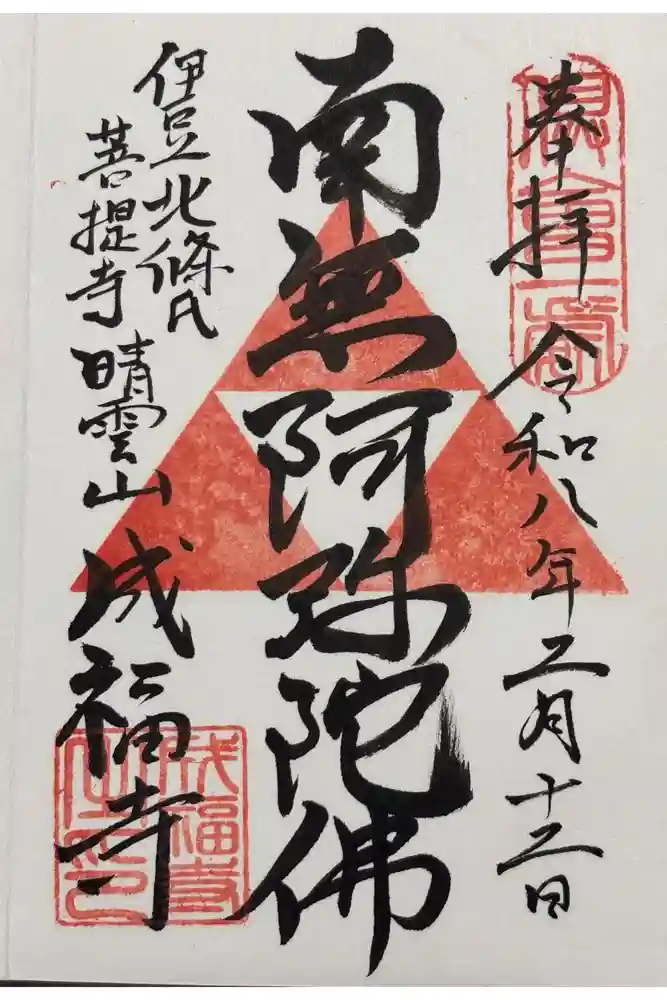 奉拝 令和八年二月十二日
南無阿弥陀佛
伊豆北條氏
菩提寺 晴雲山 成福寺
成福寺